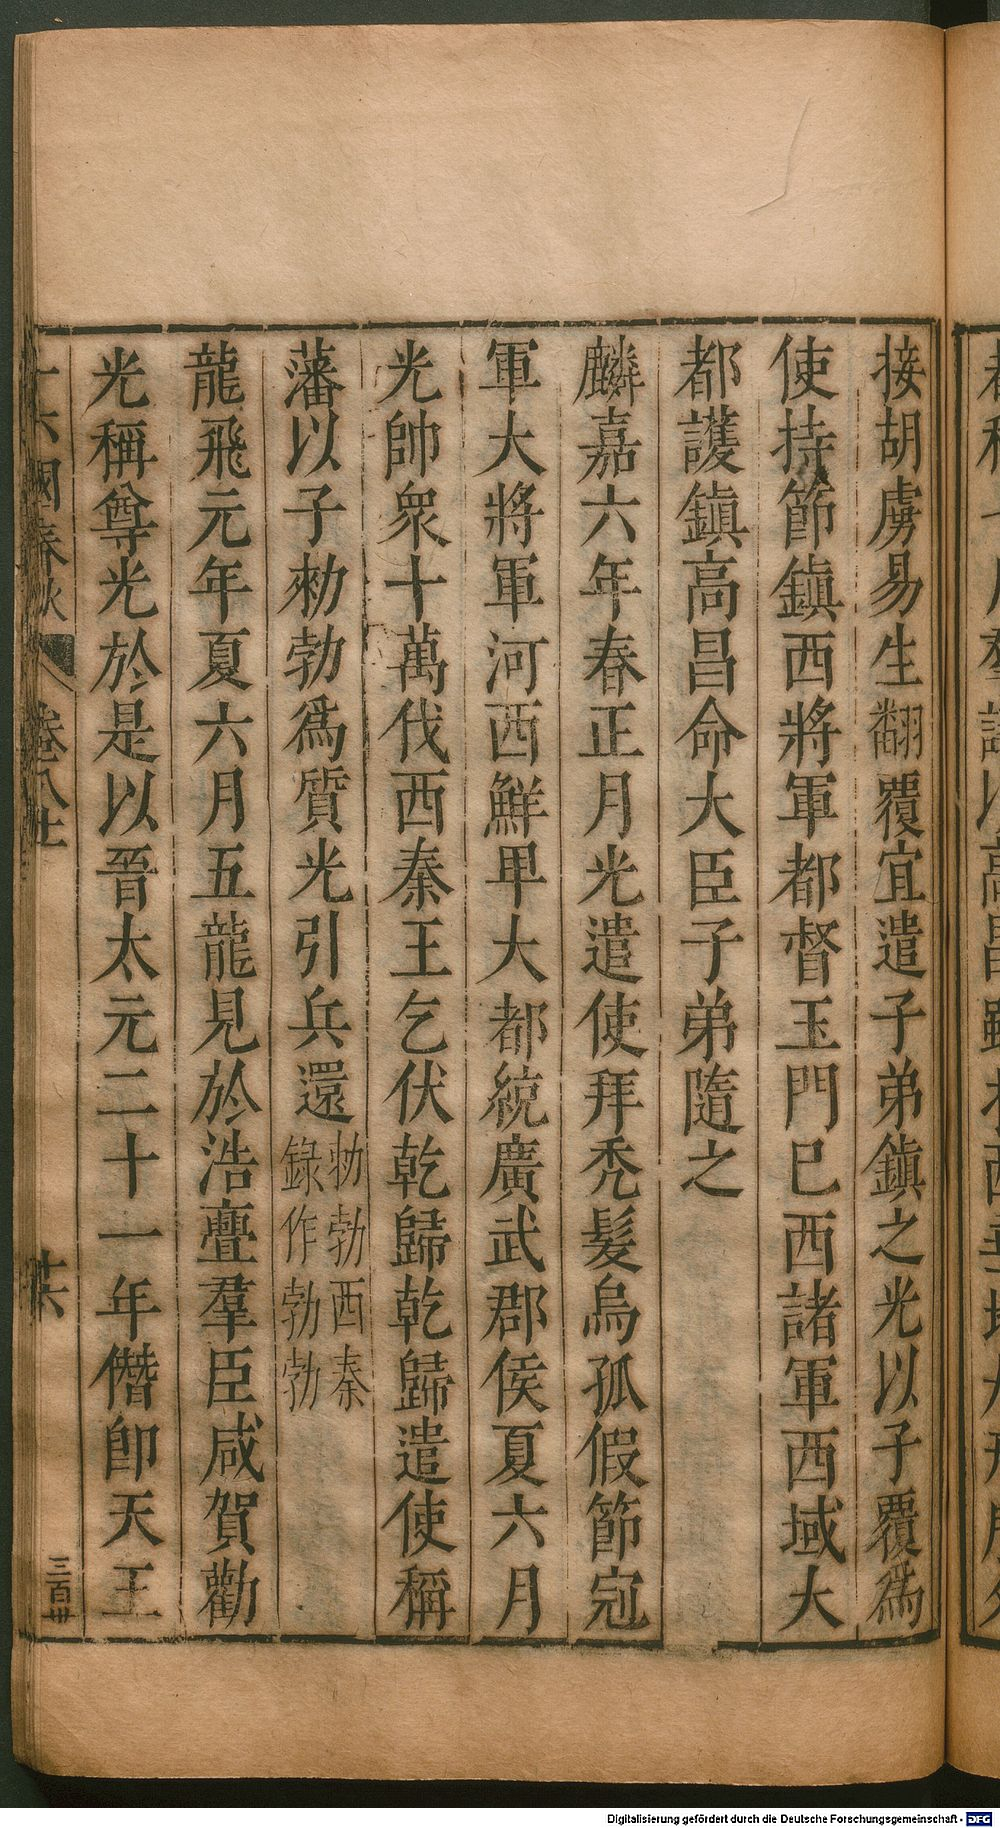 接胡虜易生翻覆宜遣子弟鎮之光以子覆爲
使持節鎮西將軍都督玉門巳西諸軍西域大
都護鎮高昌命大臣子弟隨之
麟嘉六年春正月光遣使拜禿髮烏孤假節冠
軍大將軍河西鮮甲大都統廣武郡侯夏六月
光帥衆十萬伐西秦王乞伏乾歸乾歸遣使稱
藩以子勑勃爲質光引兵還勑勃西秦
錄作勃勃
龍飛元年夏六月五龍見於浩亹羣臣咸賀勸
光稱尊光於是以晉太元二十一年僭卽天王
十六國春秋 卷八十 十六 三百卅
Digitalisierung gefördert durch die Deutsche Forschungsgemeinschaft - DFG